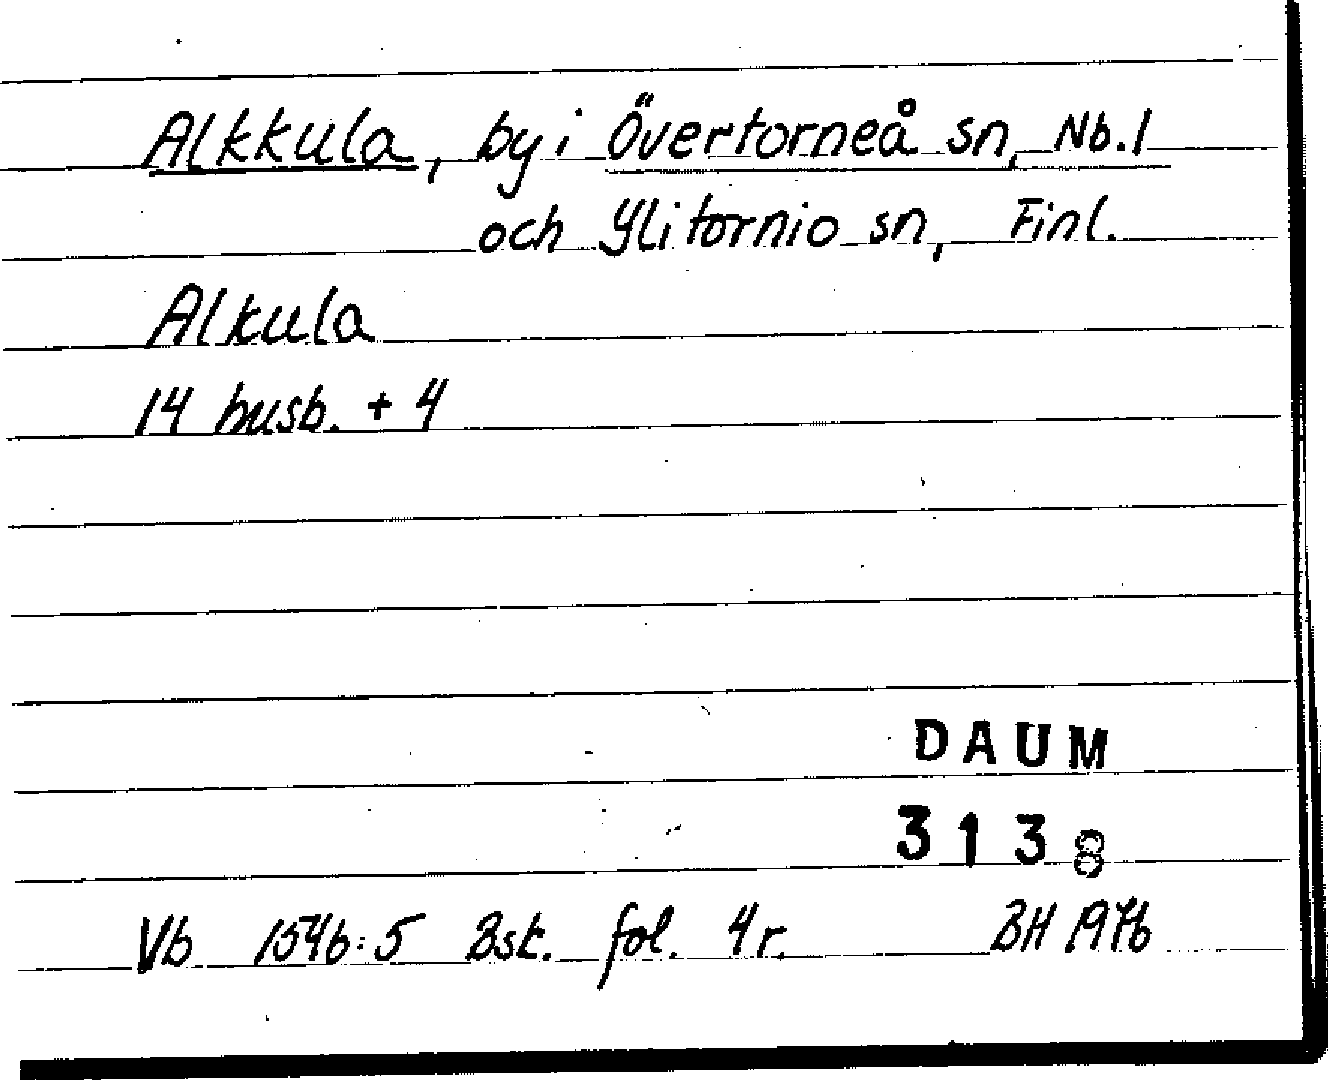 Alkkula, by i Övertorneå sn, Nb.l
och Ylitornio sn, Finl.
Alkula
14 busb. + 4
DAUM
3138
Vb 1546:5 Bsk. fol. 4r. BH 1976